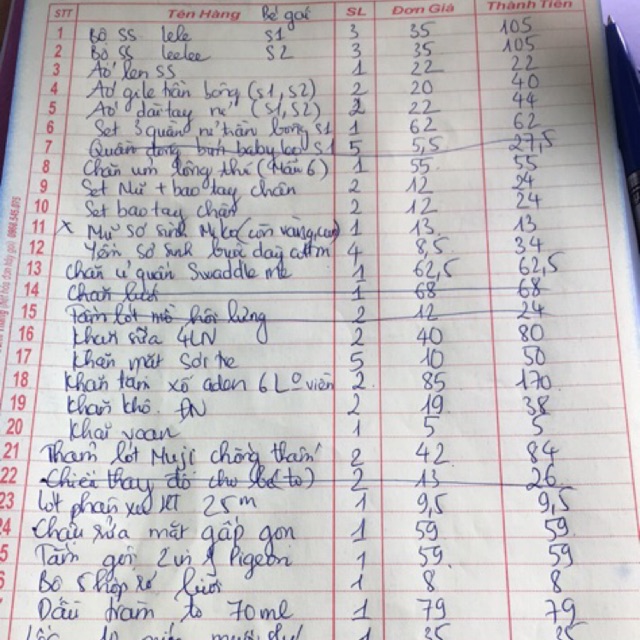 STT Tên Hàng Bé gái SL Đơn Giá Thành Tiền
1 Bộ SS lele S1 3 35 105
2 Bộ SS leelee S2 3 35 105
3 Áo len SS 1 22 22
4 Áo gile trần bông (S1, S2) 2 20 40
5 Áo dài tay nỉ (S1, S2) 2 22 44
6 Set 3 quần nỉ trần bông S1 1 62 62
7 Quần đóng bỉm baby leo S1 5 5,5 27,5
8 Chăn ủm lông thú (Mẫu 6) 1 55 55
9 Set Mũ + bao tay chân 2 12 24
10 Set bao tay chân 2 12 24
11 x Mũ sơ sinh (còn vàng, cam) 1 13 13
12 Yếm sơ sinh 4 8,5 34
13 Chăn ủ quấn Swaddle me 1 62,5 62,5
14 Chăn lưới 1 68 68
15 Tấm lót mồ hôi lưng 2 12 24
16 Khăn sữa 4LN 2 40 80
17 Khăn mặt Sợi tre 5 10 50
18 Khăn tắm xô aden 6L viền 2 85 170
19 Khăn khô 2 19 38
20 Khăn voan 1 5 5
21 Thảm lót Muji chống thấm 2 42 84
22 Chiếu thay đồ cho bé (to) 2 13 26
23 Lót phân xu KT 25m 1 9,5 9,5
24 Chậu rửa mặt gấp gọn 1 59 59
5 Tắm gội 2in1 Pigeon 1 59 59
6 Bộ lưỡi 1 8 8
7 Dầu tràm to 70ml 1 79 79